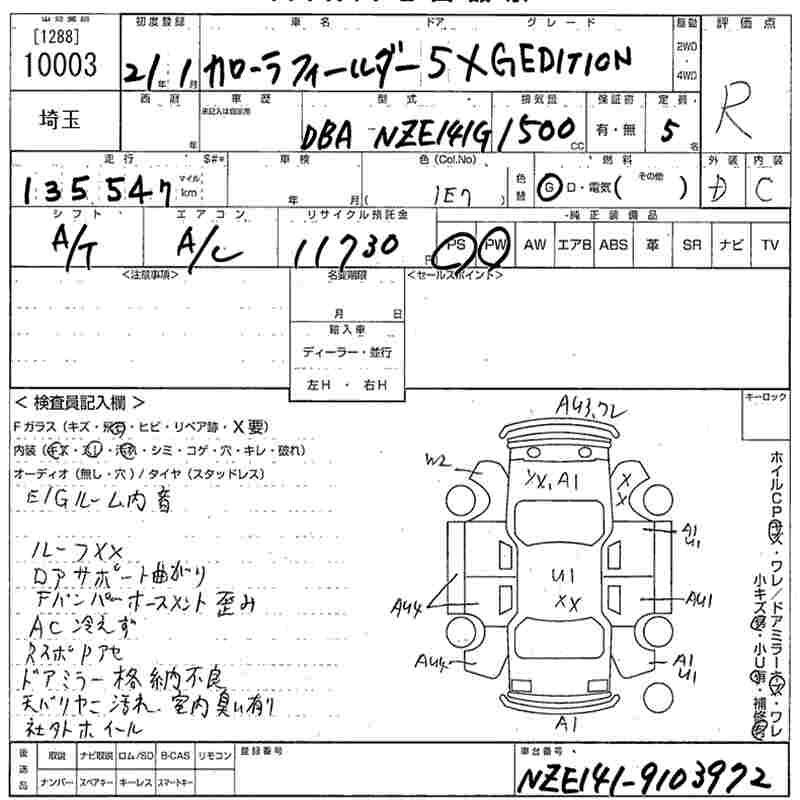 [1288]
10003
初度登録
車名
ドア
グレード
駆動
評価点
21年1月
カローラフィールダー 5 X GEDITION
2WD
・
4WD
R
埼玉
年
車歴
型式
排気量
保証書
定員
未記入は自家用
DBA NZE141G
1500cc
有・無
5名
走行
S#*
車検
色(Col.No)
燃料
外装
内装
135547
マイル
km
年 月
(1E7
色替
Gロ・電気( その他 )
D
C
シフト
エアコン
リサイクル預託金
純正装備品
A/T
A/C
11730円
PS PW AW エアB ABS 革 SR ナビ TV
<注意事項>
名変期限
<セールスポイント>
月 日
輸入車
ディーラー・並行
左H・右H
<検査員記入欄>
キーロック
Fガラス(キズ・飛石・ヒビ・リペア跡・X要)
内装(キズ・スレ・汚れ・シミ・コゲ・穴・キレ・破れ)
オーディオ(無し・穴)/タイヤ(スタッドレス)
E/Gルーム内音
ルーフXX
ロアサポート曲がり
Fバンパーホースメント歪み
AC冷えず
ドアミラー格納不良
天バリヤニ汚れ、室内臭い有り
社外ホイール
AU3,ワレ
W2
XX,A1
XX
A1
U1
U1
XX
AU4
AU1
AU4
A1
U1
A1
ホイルCPキズ・ワレ/ドアミラーキズ・ワレ
小キズ有・小U有・補修有
後送品
取説 ナビ取説 ロム/SD B-CAS リモコン
ナンバー スペアキー キーレス スマートキー
登録番号
車台番号
NZE141-9103972